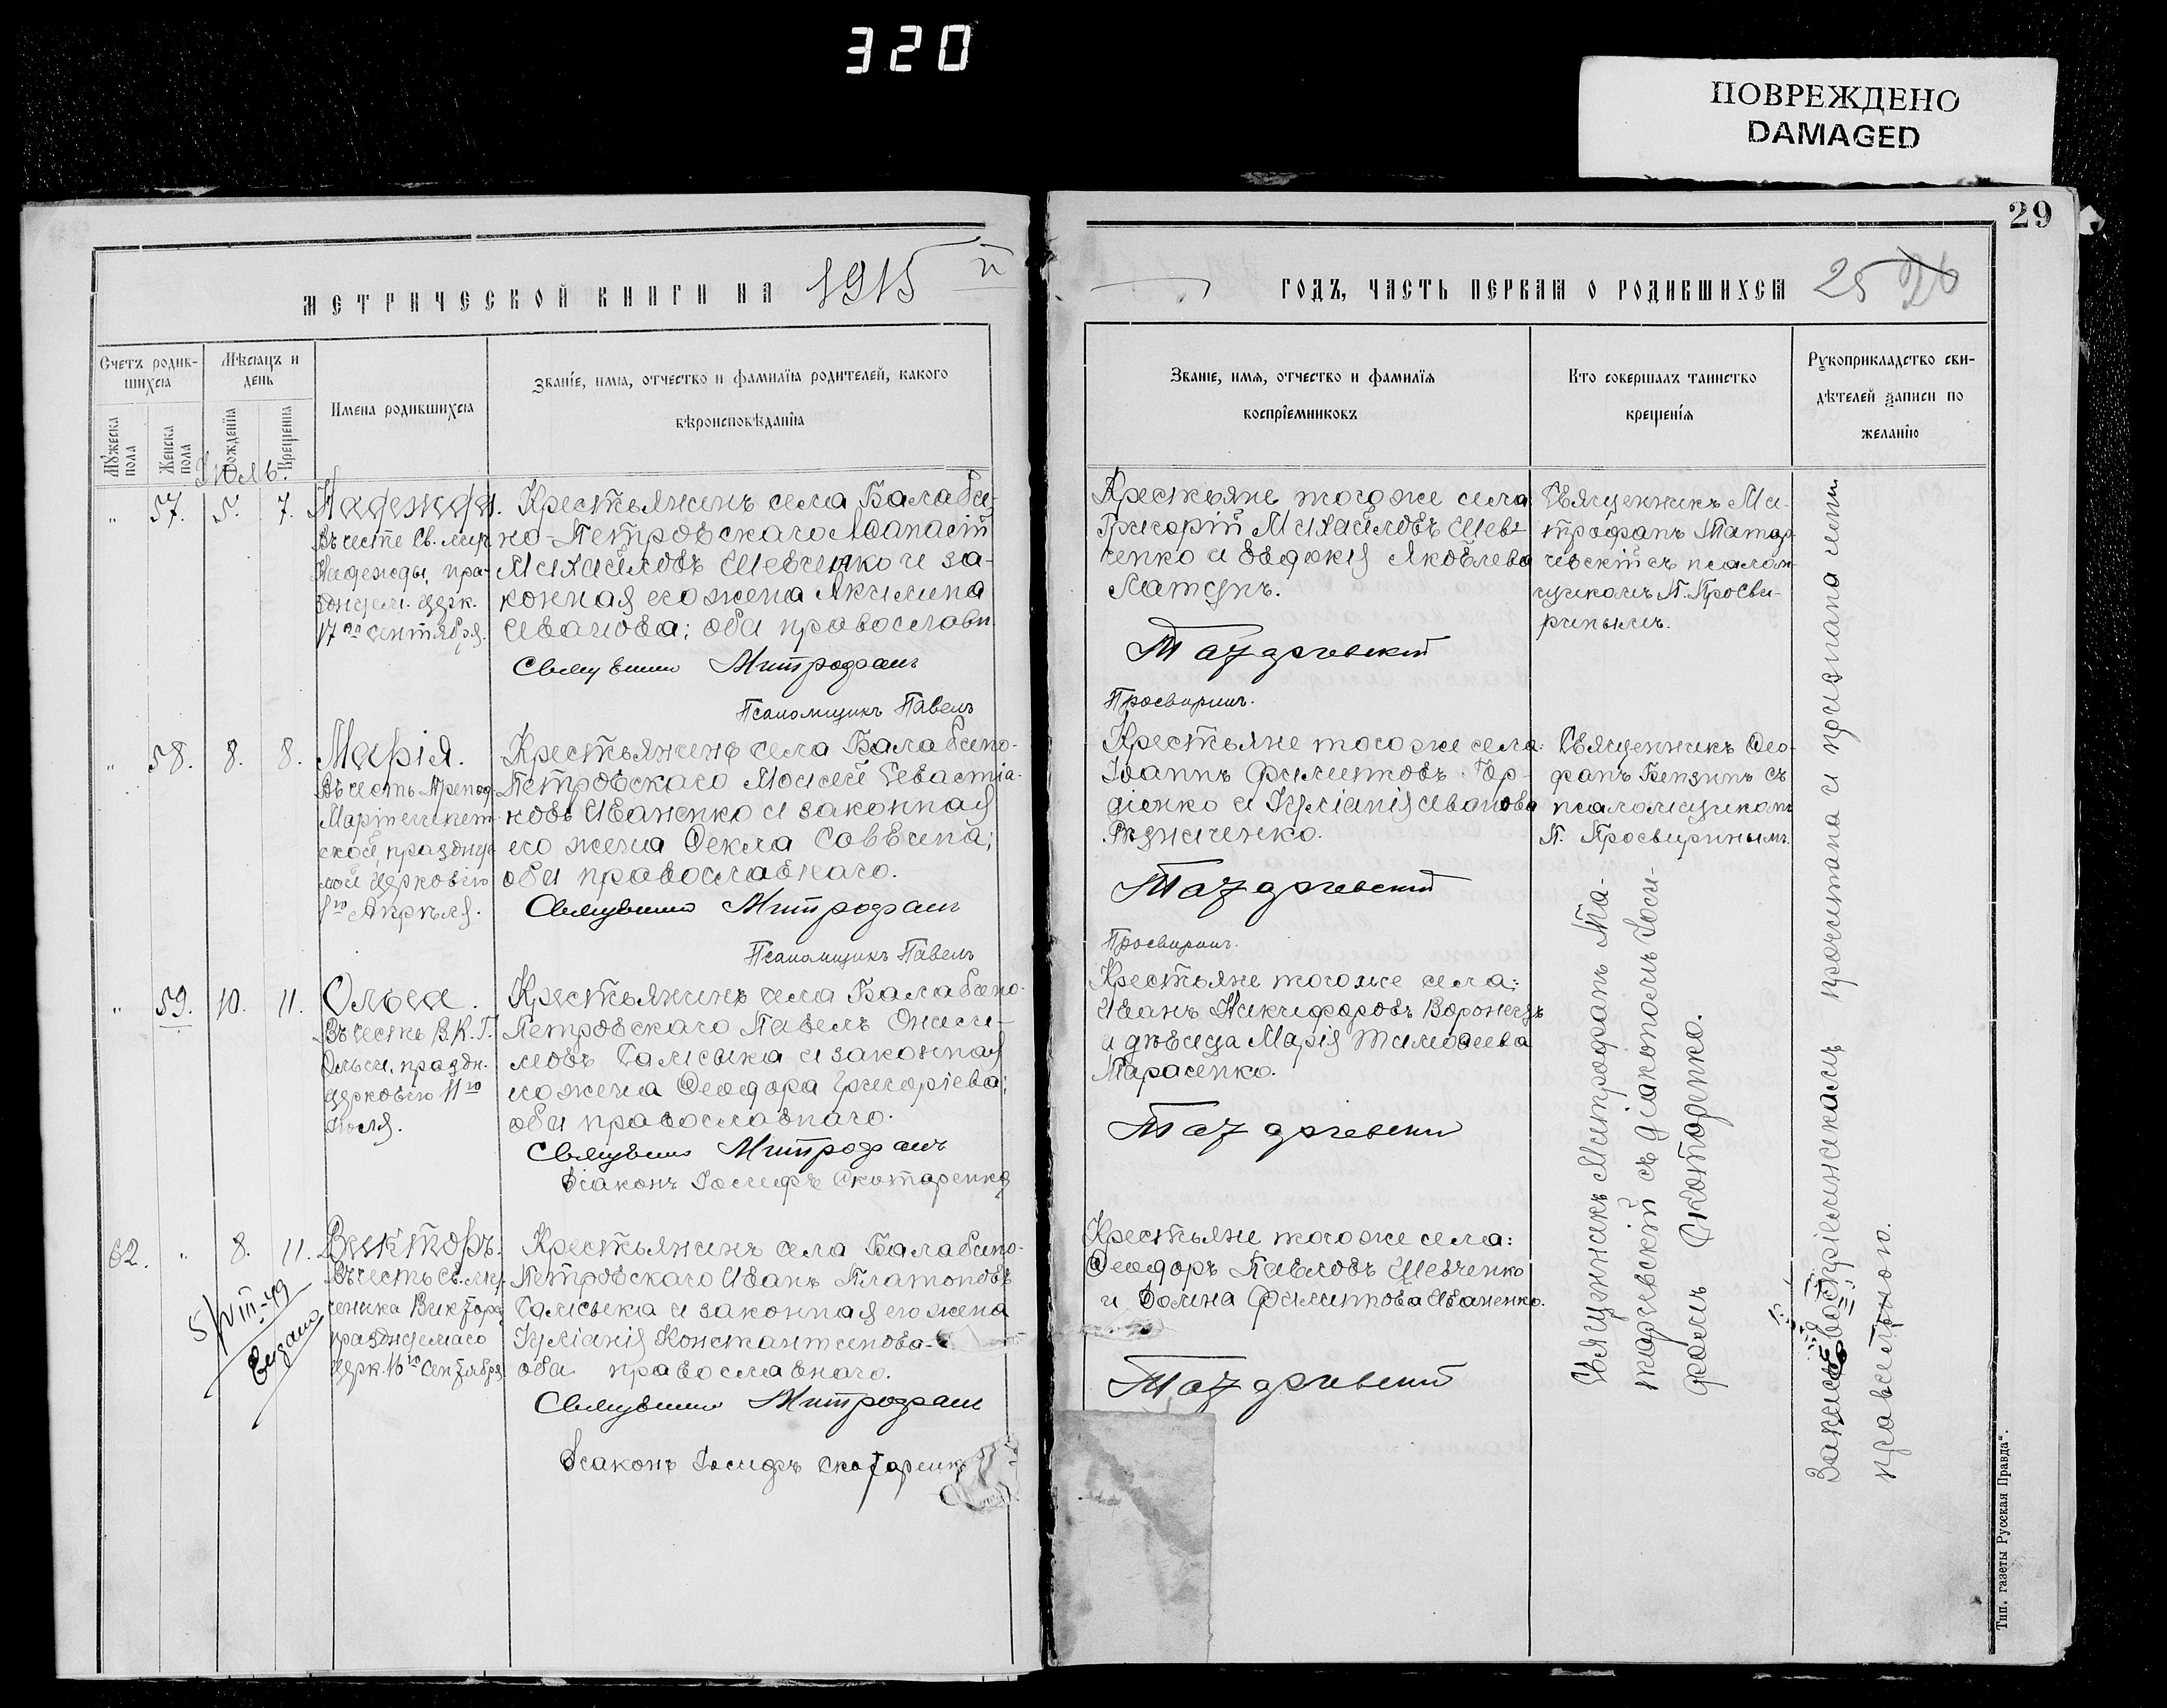 320
ПОВРЕЖДЕНО
DAMAGED
29
МЕТРИЧЕСКОЙ КНИГИ НА 1915
ГОДЪ, ЧАСТЬ ПЕРВАЯ О РОДИВШИХСЯ 25
Счетъ родив-
шихся
Мужеска пола
Женска пола
Мѣсяцъ и
день
рожденїя
крещенїя
Имена родившихся
Званїе, имя, отчество и фамилїя родителей, какого
вѣроисповѣданїя
Званїе, имя, отчество и фамилїя
воспрїемниковъ
Кто совершалъ таинство
крещенїя
Рукоприкладство сви-
дѣтелей записи по
желанїю
Июль.
„ 57. 5. 7.
Надежда.
Въ честь Св. муч.
Надежды, пра-
здуем. церк.
17го Сентября.
Крестьянинъ села Балабино-
Петровскаго Аѳанасій
Михайловъ Шевченко и за-
конная его жена Акилина
Иванова; оба православн.
Священникъ Митрофанъ
Псаломщикъ Павелъ
Крестьяне того же села
Григорій Михайловъ Шев-
ченко и Евдокія Яковлева
Латунъ.
Татарчевскій
Просвиринъ.
Священникъ Ми-
трофанъ Татар-
чевскій съ псалом-
щикомъ П. Просви-
ринымъ.
„ 58. 8. 8.
Марія.
Въ честь Препод.
Маріи египет-
ской, празднуе-
мой Церковію
1го Апрѣля.
Крестьянинъ села Балабино-
Петровскаго Моисей Севастіа-
новъ Иваненко и законная
его жена Ѳекла Саввина;
оба православнаго.
Священникъ Митрофанъ
Псаломщикъ Павелъ
Крестьяне того же села:
Іоаннъ Филипповъ Гор-
діенко и Іуліанія Иванова
Рѣзниченко.
Татарчевскій
Просвиринъ.
Священникъ Ѳео-
фанъ Бензинъ съ
псаломщикомъ
П. Просвиринымъ.
„ 59. 10. 11.
Ольга.
Въ честь В. К. Г.
Ольги, праздн.
церковію 11го
Іюля.
Крестьянинъ села Балабино-
Петровскаго Павелъ Ониси-
мовъ Галисыка и законная
его жена Ѳеодора Григоріева;
оба православнаго.
Священникъ Митрофанъ
Діаконъ Іосифъ Скотаренко
Крестьяне того же села:
Иванъ Никифоровъ Воронецъ
и дѣвица Марія Тимоѳеева
Тарасенко.
Татарчевскій
Священникъ Митрофанъ Та-
тарчевскій съ діакономъ Іоси-
фомъ Скотаренко.
62. „ 8. 11.
Викторъ.
Въ честь Св. му-
ченика Виктора
празднуемаго
Церк. 16го Сентября
5/VIII-49
Видано
Крестьянинъ села Балабино-
Петровскаго Иванъ Платоновъ
Галисыка и законная его жена
Іуліанія Константинова
оба православнаго.
Священникъ Митрофанъ
Діаконъ Іосифъ Скотаренко
Крестьяне того же села:
Ѳеодоръ Павловъ Шевченко
и Домна Филиппова Иваненко.
Татарчевскій
Запись воспріемникамъ прочитана и признана ими
правильною.
Тип. газеты Русская Правда“.